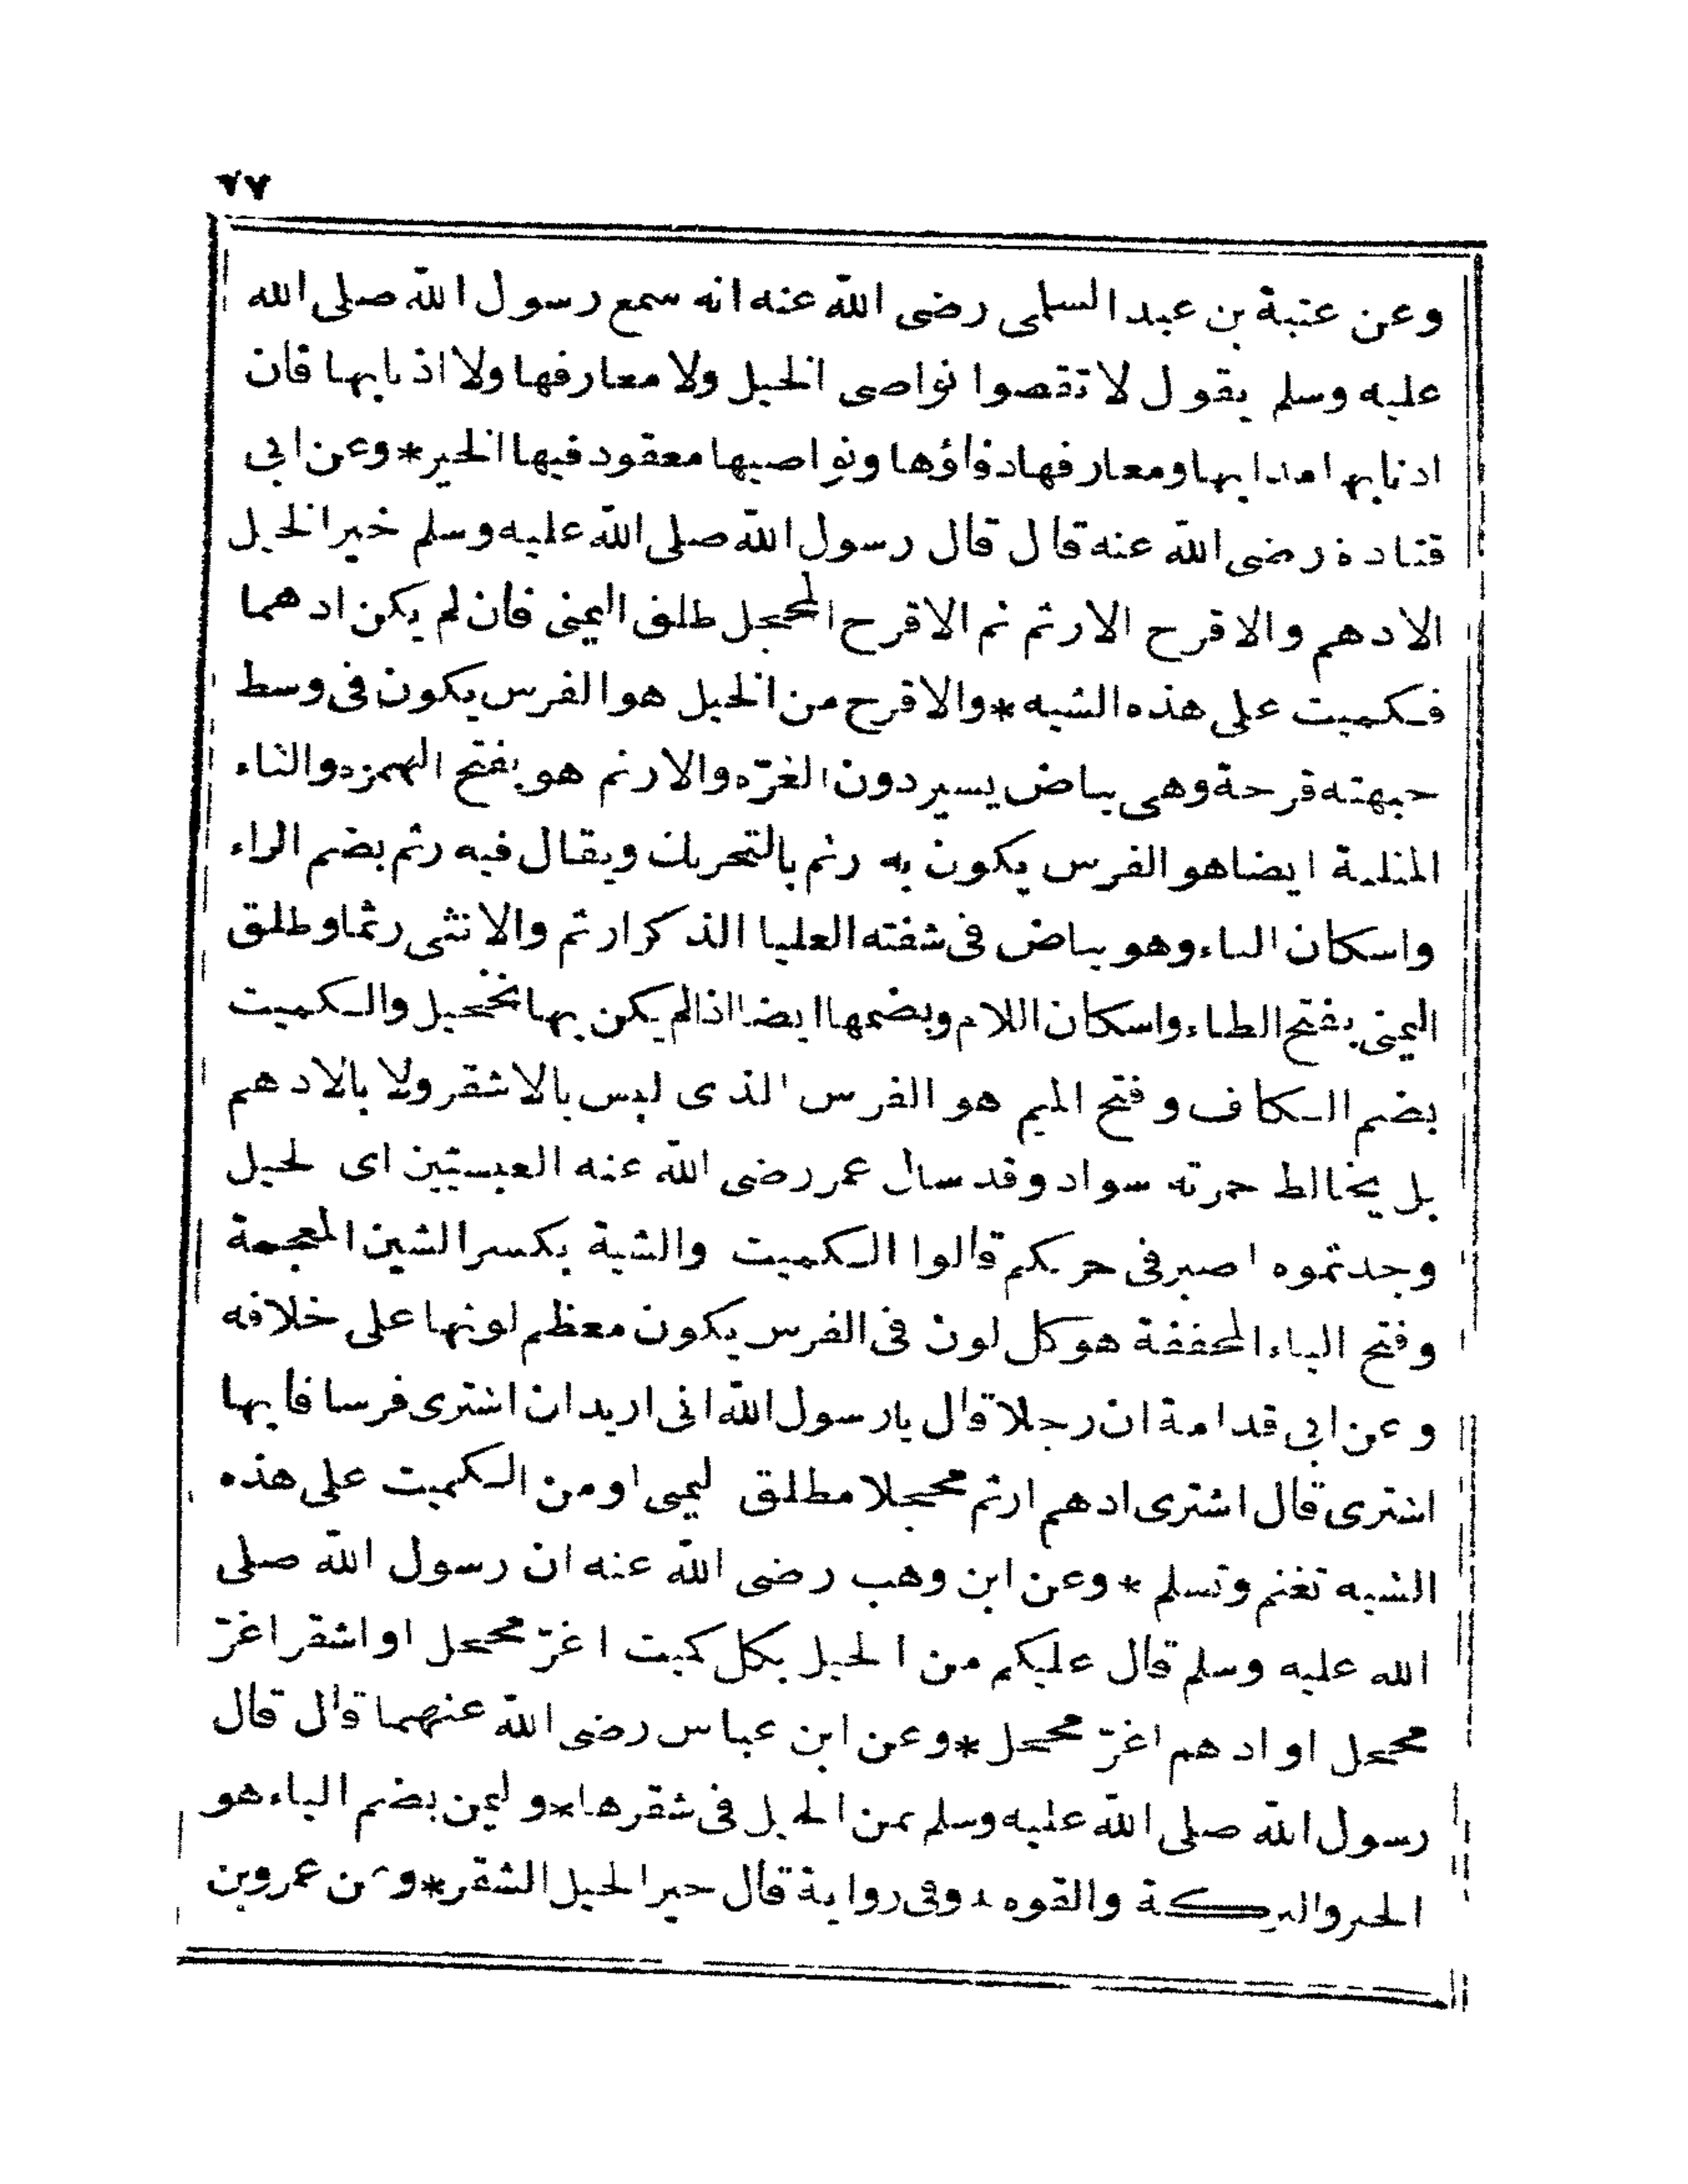 ٢٧
وعن عتبة بن عبد السلمى رضى الله عنه انه سمع رسول الله صلى الله
عليه وسلم يقول لا تقصوا نواصى الخيل ولا معارفها ولا اذنابها فان
اذنابها مذابها ومعارفها دفاؤها ونواصيها معقود فيها الخير * وعن ابى
قتادة رضى الله عنه قال قال رسول الله صلى الله عليه وسلم خير الخيل
الادهم والاقرح الارثم ثم الاقرح المحجل طلق اليمنى فان لم يكن ادهما
فكميت على هذه الشيه * والاقرح من الخيل هو الفرس يكون فى وسط
جبهته قرحة وهى بياض يسير دون الغرّه والارثم هو بفتح الهمزه والثاء
المثلثة ايضا هو الفرس يكون به رثم بالتحريك ويقال فيه رثم بضم الراء
واسكان الثاء وهو بياض فى شفته العليا الذكر ارثم والانثى رثما وطلق
اليمنى بفتح الطاء واسكان اللام وبضمها ايضا اذا لم يكن بها تحجيل والكميت
بضم الكاف وفتح الميم هو الفرس الذى ليس بالاشقر ولا بالادهم
بل يخالط حمرته سواد وقد سال عمر رضى الله عنه العبسيين اى لخيل
وجدتموه اصبر فى حربكم قالوا الكميت والشية بكسر الشين المعجمة
وفتح الياء المخففة هو كل لون فى الفرس يكون معظم لونها على خلافه
وعن ابى قدامة ان رجلا قال يارسول الله انى اريد ان اشترى فرسا فايها
اشترى قال اشترى ادهم ارثم محجلا مطلق ليمى او من الكميت على هذه
الشيه تغنم وتسلم * وعن ابن وهب رضى الله عنه ان رسول الله صلى
الله عليه وسلم قال عليكم من الخيل بكل كميت اغرّ محجل او اشقر اغرّ
محجل او ادهم اغرّ محجل * وعن ابن عباس رضى الله عنهما قال قال
رسول الله صلى الله عليه وسلم يمن الخيل فى شقرها * وليمن بضم الياء هو
الخير والبركة والقوه * وفى رواية قال خير الخيل الشقر * وعن عمرو بن